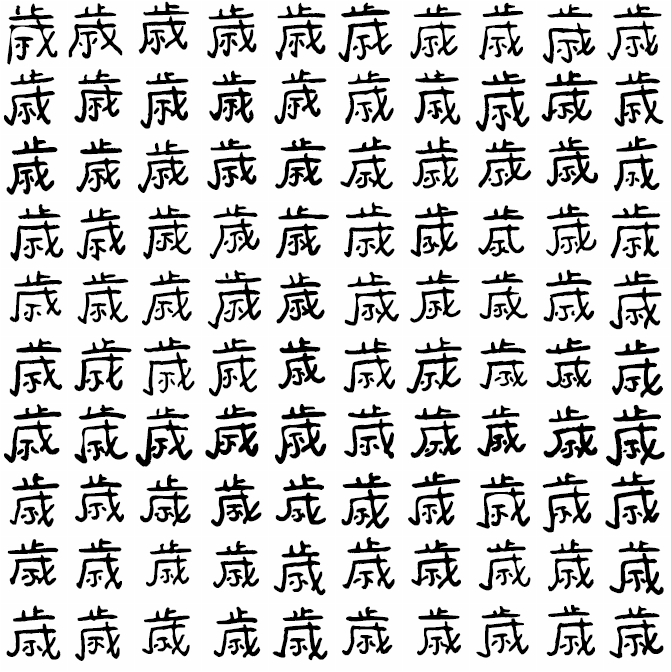 歳歳歳歳歳歳歳歳歳歳
歳歳歳歳歳歳歳歳歳歳
歳歳歳歳歳歳歳歳歳歳
歳歳歳歳歳歳歳歳歳歳
歳歳歳歳歳歳歳歳歳歳
歳歳歳歳歳歳歳歳歳歳
歳歳歳歳歳歳歳歳歳歳
歳歳歳歳歳歳歳歳歳歳
歳歳歳歳歳歳歳歳歳歳
歳歳歳歳歳歳歳歳歳歳